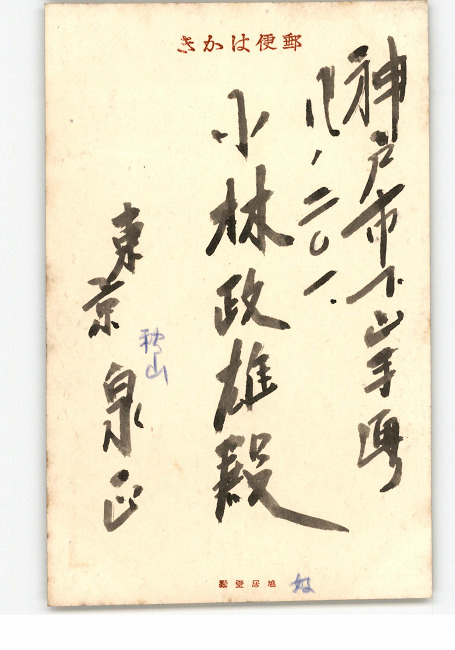 郵便はかき
神戸市下山手通
八ノ二〇一
小林政雄殿
東京 泉正
秋山
鳩居堂製